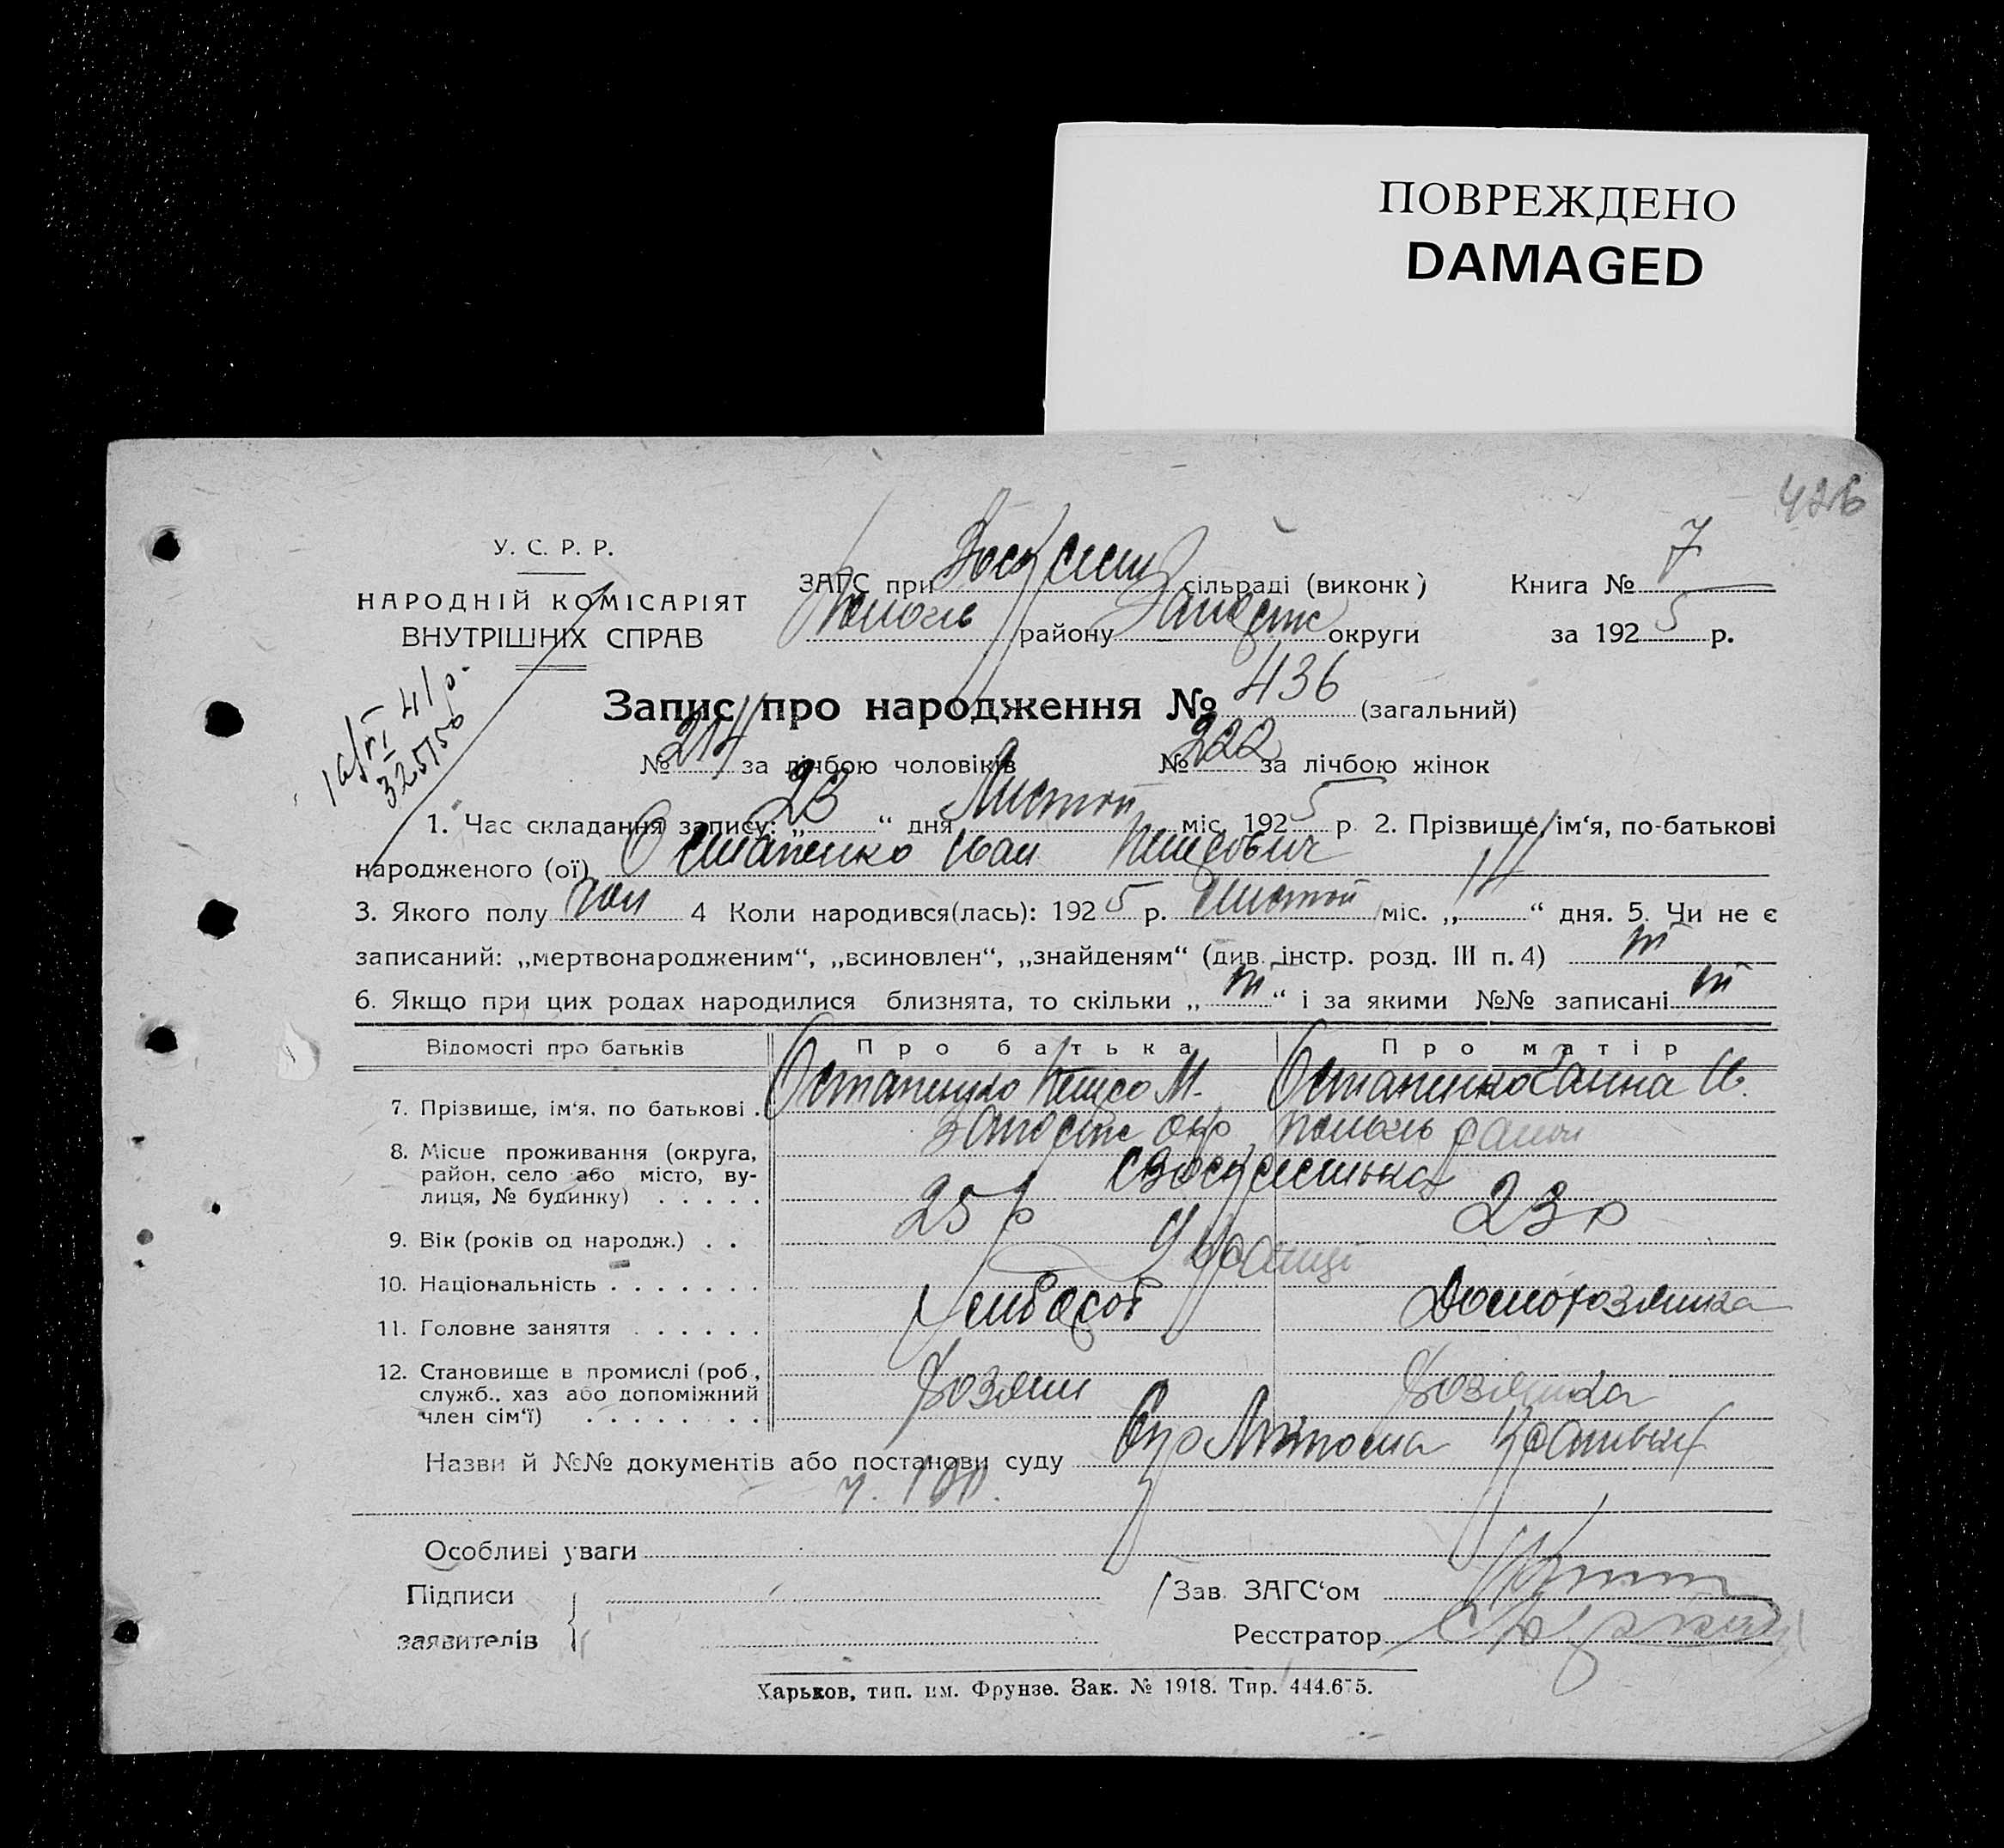 ПОВРЕЖДЕНО
DAMAGED
426
У. С. Р. Р.
НАРОДНІЙ КОМІСАРІЯТ
ВНУТРІШНІХ СПРАВ
ЗАГС при сільраді (виконк) Книга № 7
району округи за 1925 р.
Запис про народження № 436 (загальний)
№ 214 за лічбою чоловіків № 222 за лічбою жінок
1. Час складання запису: „23“ дня Листоп міс. 1925 р. 2. Прізвище, ім‘я, по-батькові
народженого (ої) Остапенко Іван Петрович
3. Якого полу чол 4 Коли народився(лась): 1925 р. Листоп міс. „14“ дня. 5. Чи не є
записаний: „мертвонародженим“, „всиновлен“, „знайденям“ (див. інстр. розд. III п. 4) ні
6. Якщо при цих родах народилися близнята, то скільки „ні“ і за якими №№ записані ні
Відомості про батьків Про батька Про матір
7. Прізвище, ім‘я, по батькові . Остапенко Петро М. Остапенко Ганна И.
8. Місце проживання (округа,
район, село або місто, ву-
лиця, № будинку) . . . . .
9. Вік (років од народж.) . . 25 р 23 р
10. Національність . . . . . . . Українці
11. Головне заняття . . . . . . Хлібороб Домохозяйка
12. Становище в промислі (роб.,
служб., хаз або допоміжний
член сім‘ї) . . . . . . . . Хозяин Хозяйка
Назви й №№ документів або постанови суду
Особливі уваги
Підписи Зав. ЗАГС‘ом
заявителів Реєстратор
Харьков, тип. им. Фрунзе. Зак. № 1918. Тир. 444.675.